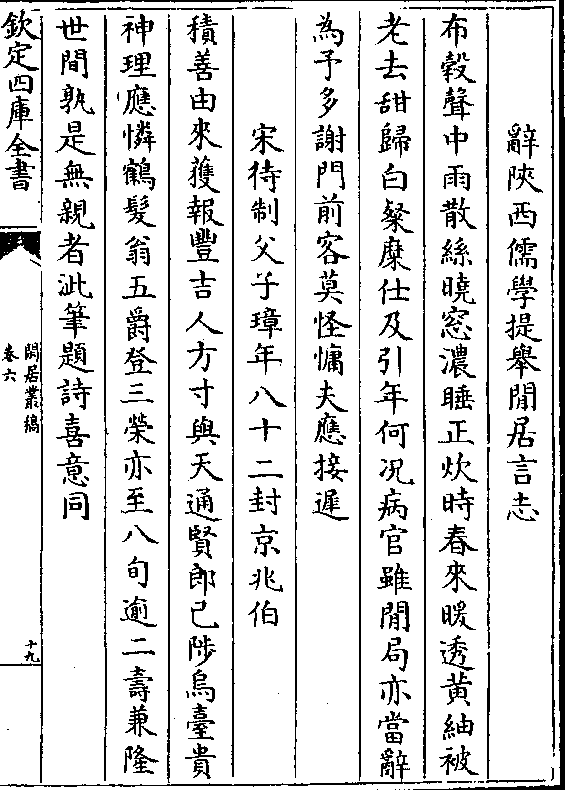 辭陜西儒學提舉閒居言志
布穀聲中雨散絲曉窓濃睡正炊時春來暖透黃紬被
老去甜歸白粲糜仕及引年何況病官雖閒局亦當辭
為予多謝門前客莫怪慵夫應接遲
宋待制父子璋年八十二封京兆伯
積善由來獲報豐吉人方寸與天通賢郎已陟烏臺貴
神理應憐鶴髮翁五爵登三榮亦至八旬逾二壽兼隆
世間孰是無親者泚筆題詩喜意同
欽定四庫全書
閒居叢稿
卷六
十九